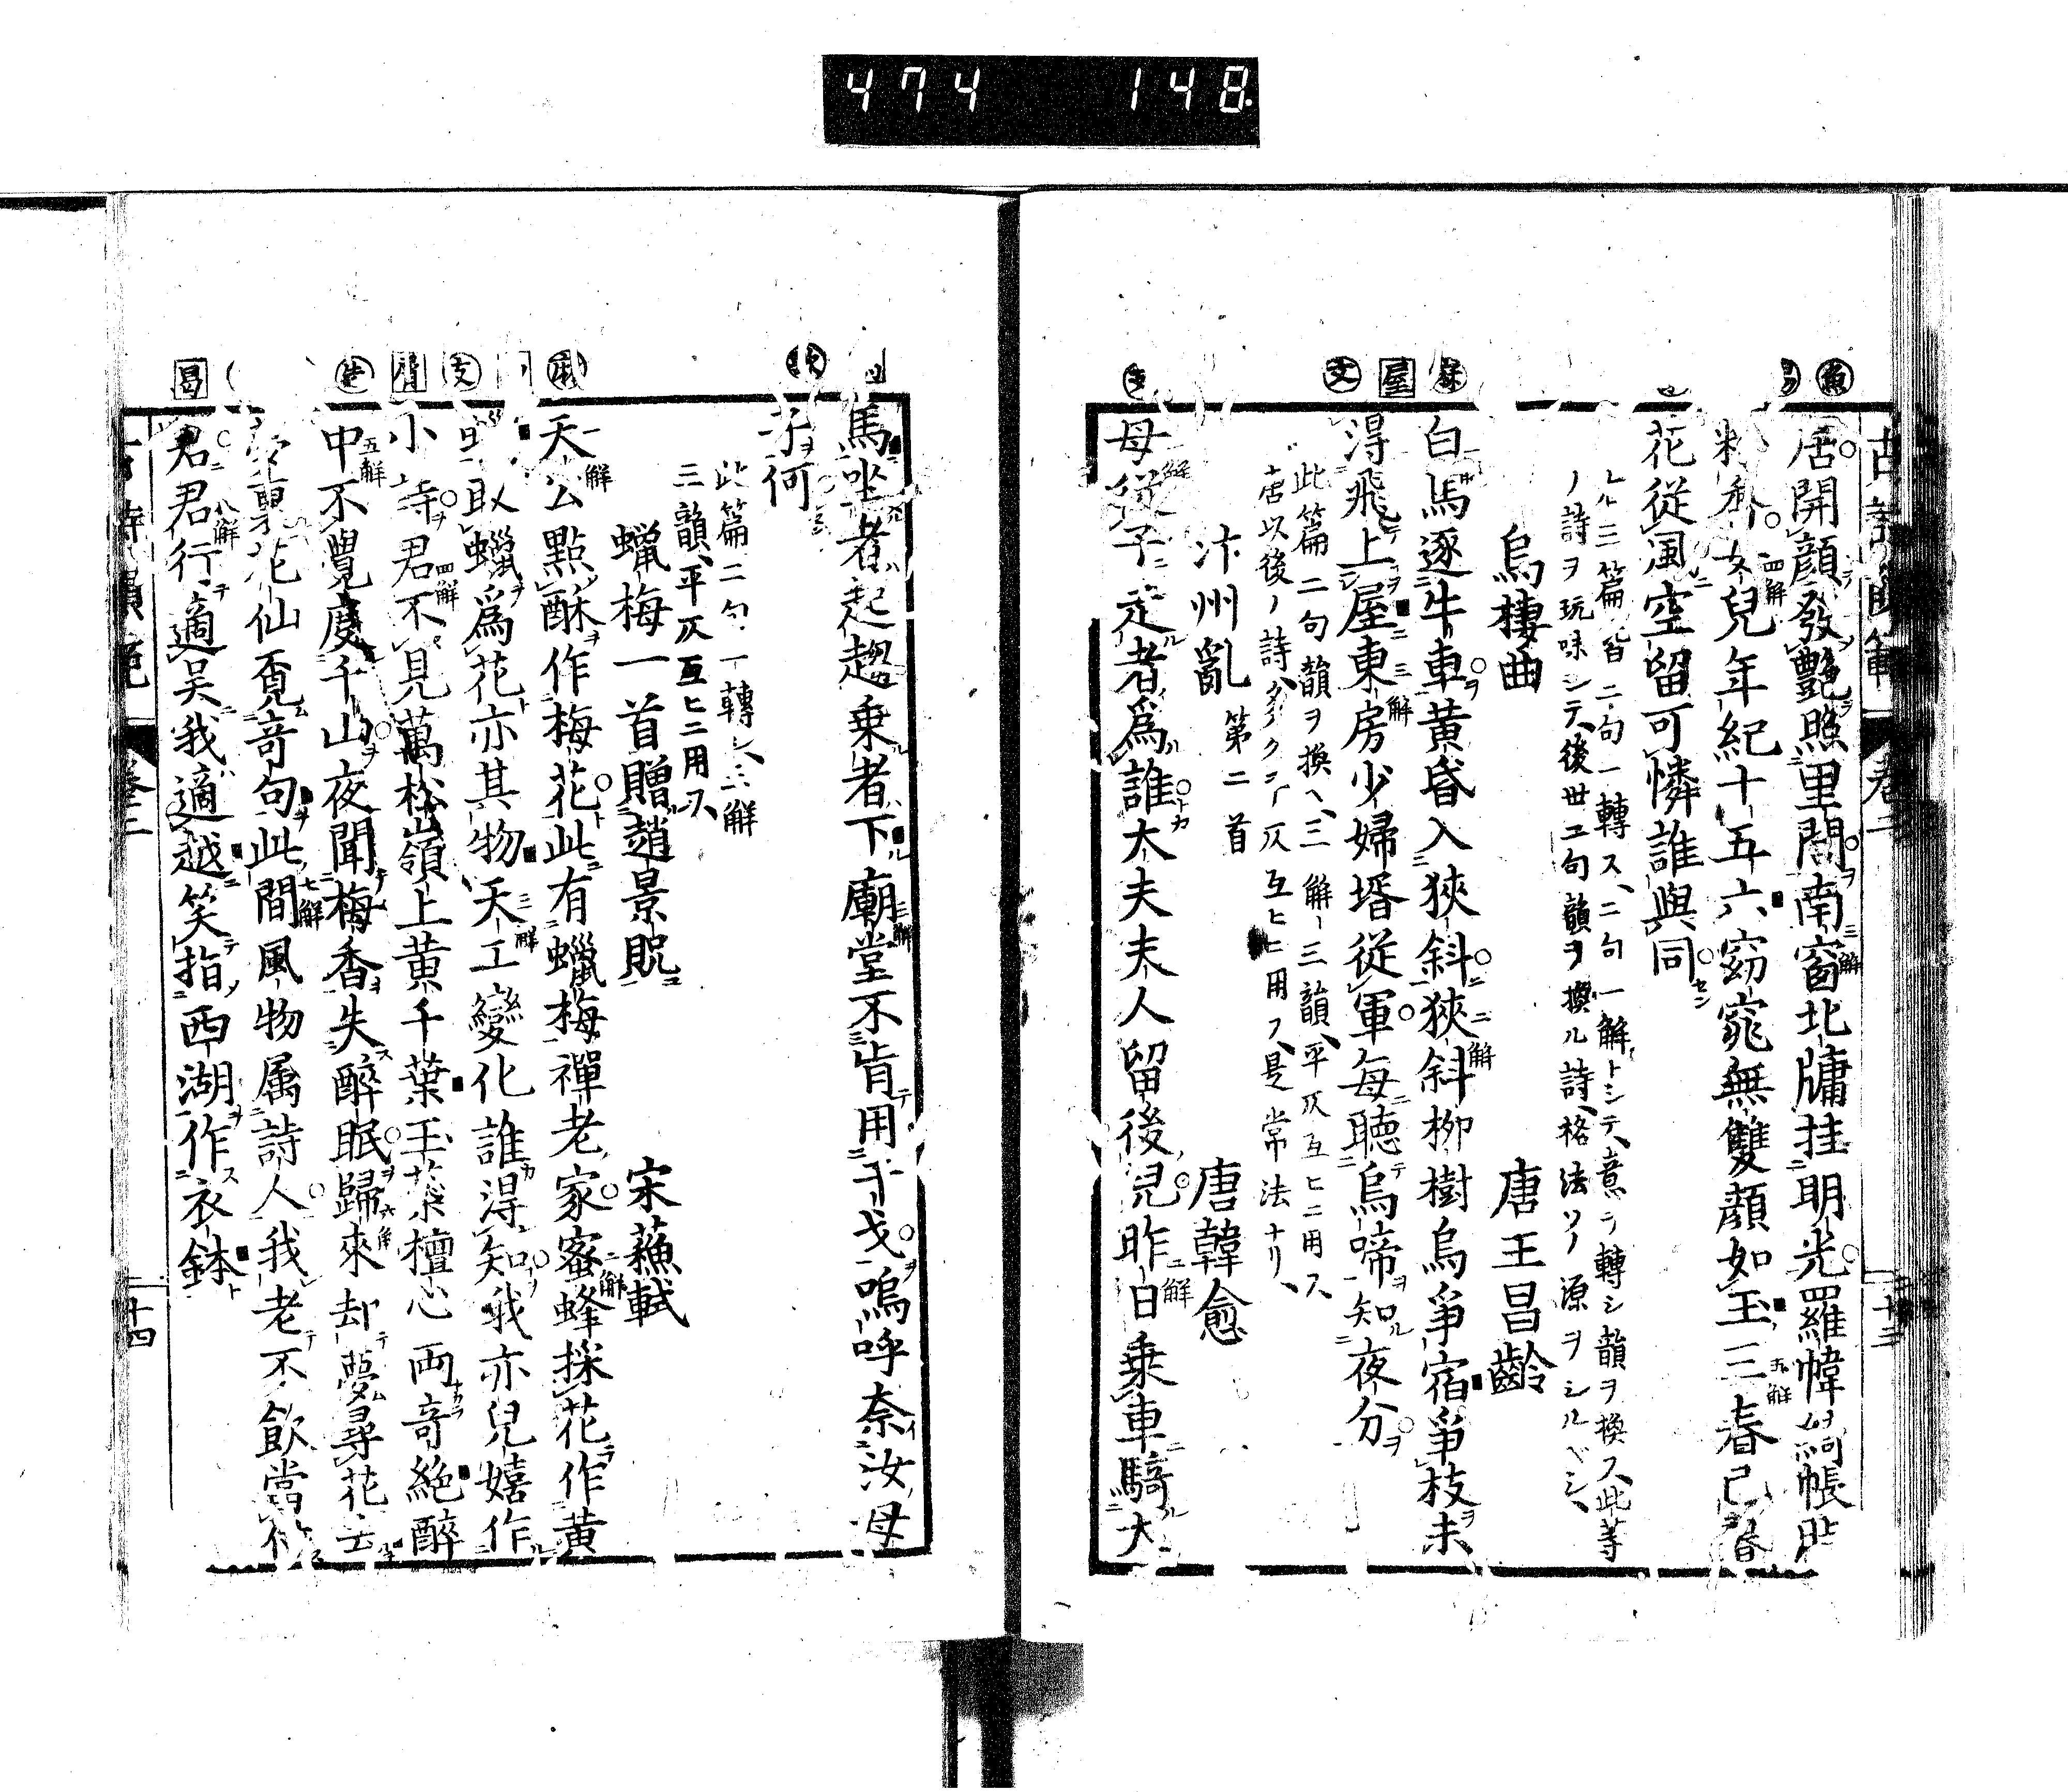 474 148
居開顔發艷照里閭南窗北牖挂明光羅幃綺帳
女兒年紀十五六窈窕無雙顔如玉三春已
花從風空留可憐誰與同
三篇皆二句一轉ス、二句一解トシテ、意ヲ轉シ韻ヲ換ス、此等
ノ詩ヲ玩味シテ、後世ニ句韻ヲ換ル詩、格法ソノ源ヲシルベシ、
烏棲曲 唐王昌齡
白馬逐牛車黄昏入狹斜狹斜柳樹烏爭宿爭枝未
得飛上屋東房少婦壻從軍毎聽烏啼知夜分
此篇二句韻ヲ換ヘ、三解三韻、平仄互ヒニ用フ、
唐以後ノ詩、多クコノ仄互ヒニ用フ、是常法ナリ、
汴州亂 第二首 唐韓愈
母從子走者爲誰大夫夫人留後兒昨日乗車騎大
馬坐者起趨乗者下廟堂不肯用干戈嗚呼奈汝母
子何
此篇二句一轉シ、三解
三韻、平仄互ヒニ用フ、
蠟梅一首贈趙景貺 宋蘓軾
天公點酥作梅花此有蠟梅禪老家蜜蜂採花作黄
取蠟爲花亦其物天工變化誰得知我亦兒嬉作
小詩君不見萬松嶺上黄千葉玉蘂檀心兩奇絶醉
中不覺度千山夜聞梅香失醉眠歸來却夢尋花去
裏花仙覓竒句此間風物属詩人我老不飲當付
君君行適吳我適越笑指西湖作衣鉢
十四